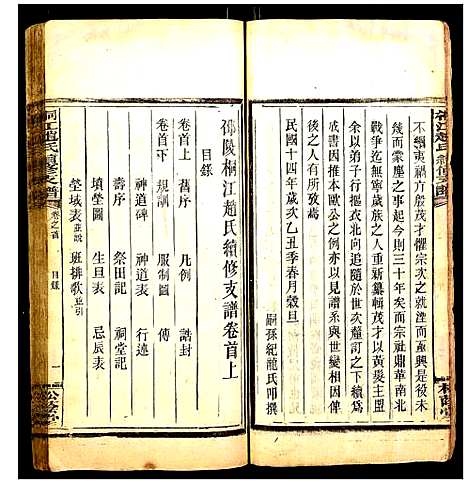 不續夷禍方殷茂才懼宗次之就亡而重興是役未
幾而蒙塵之事起今則三十年矣而宗社鼎革南北
戰爭迄無寧歲族人更新纂輯茂才以黃髮主盟
以弟子行摳衣北向追隨於世次釐訂之下續
成書因推本歐公之例亦以見譜系與世變相因俾
後之人有所攷焉
民國十四年歲次乙丑季春月穀旦
嗣孫紀龍氏叩撰
桐江趙氏續修支譜
卷之首
目錄
一
松蔭堂
邵陵桐江趙氏續修支譜卷首上
目錄
卷首上
舊序 凡例 誥封
卷首下
規訓 服制圖 傳
神道碑 神道表 行述
壽序 祭田記 祠堂記
墳塋圖 生旦表 忌辰表
塋域表並説 班排敘並引